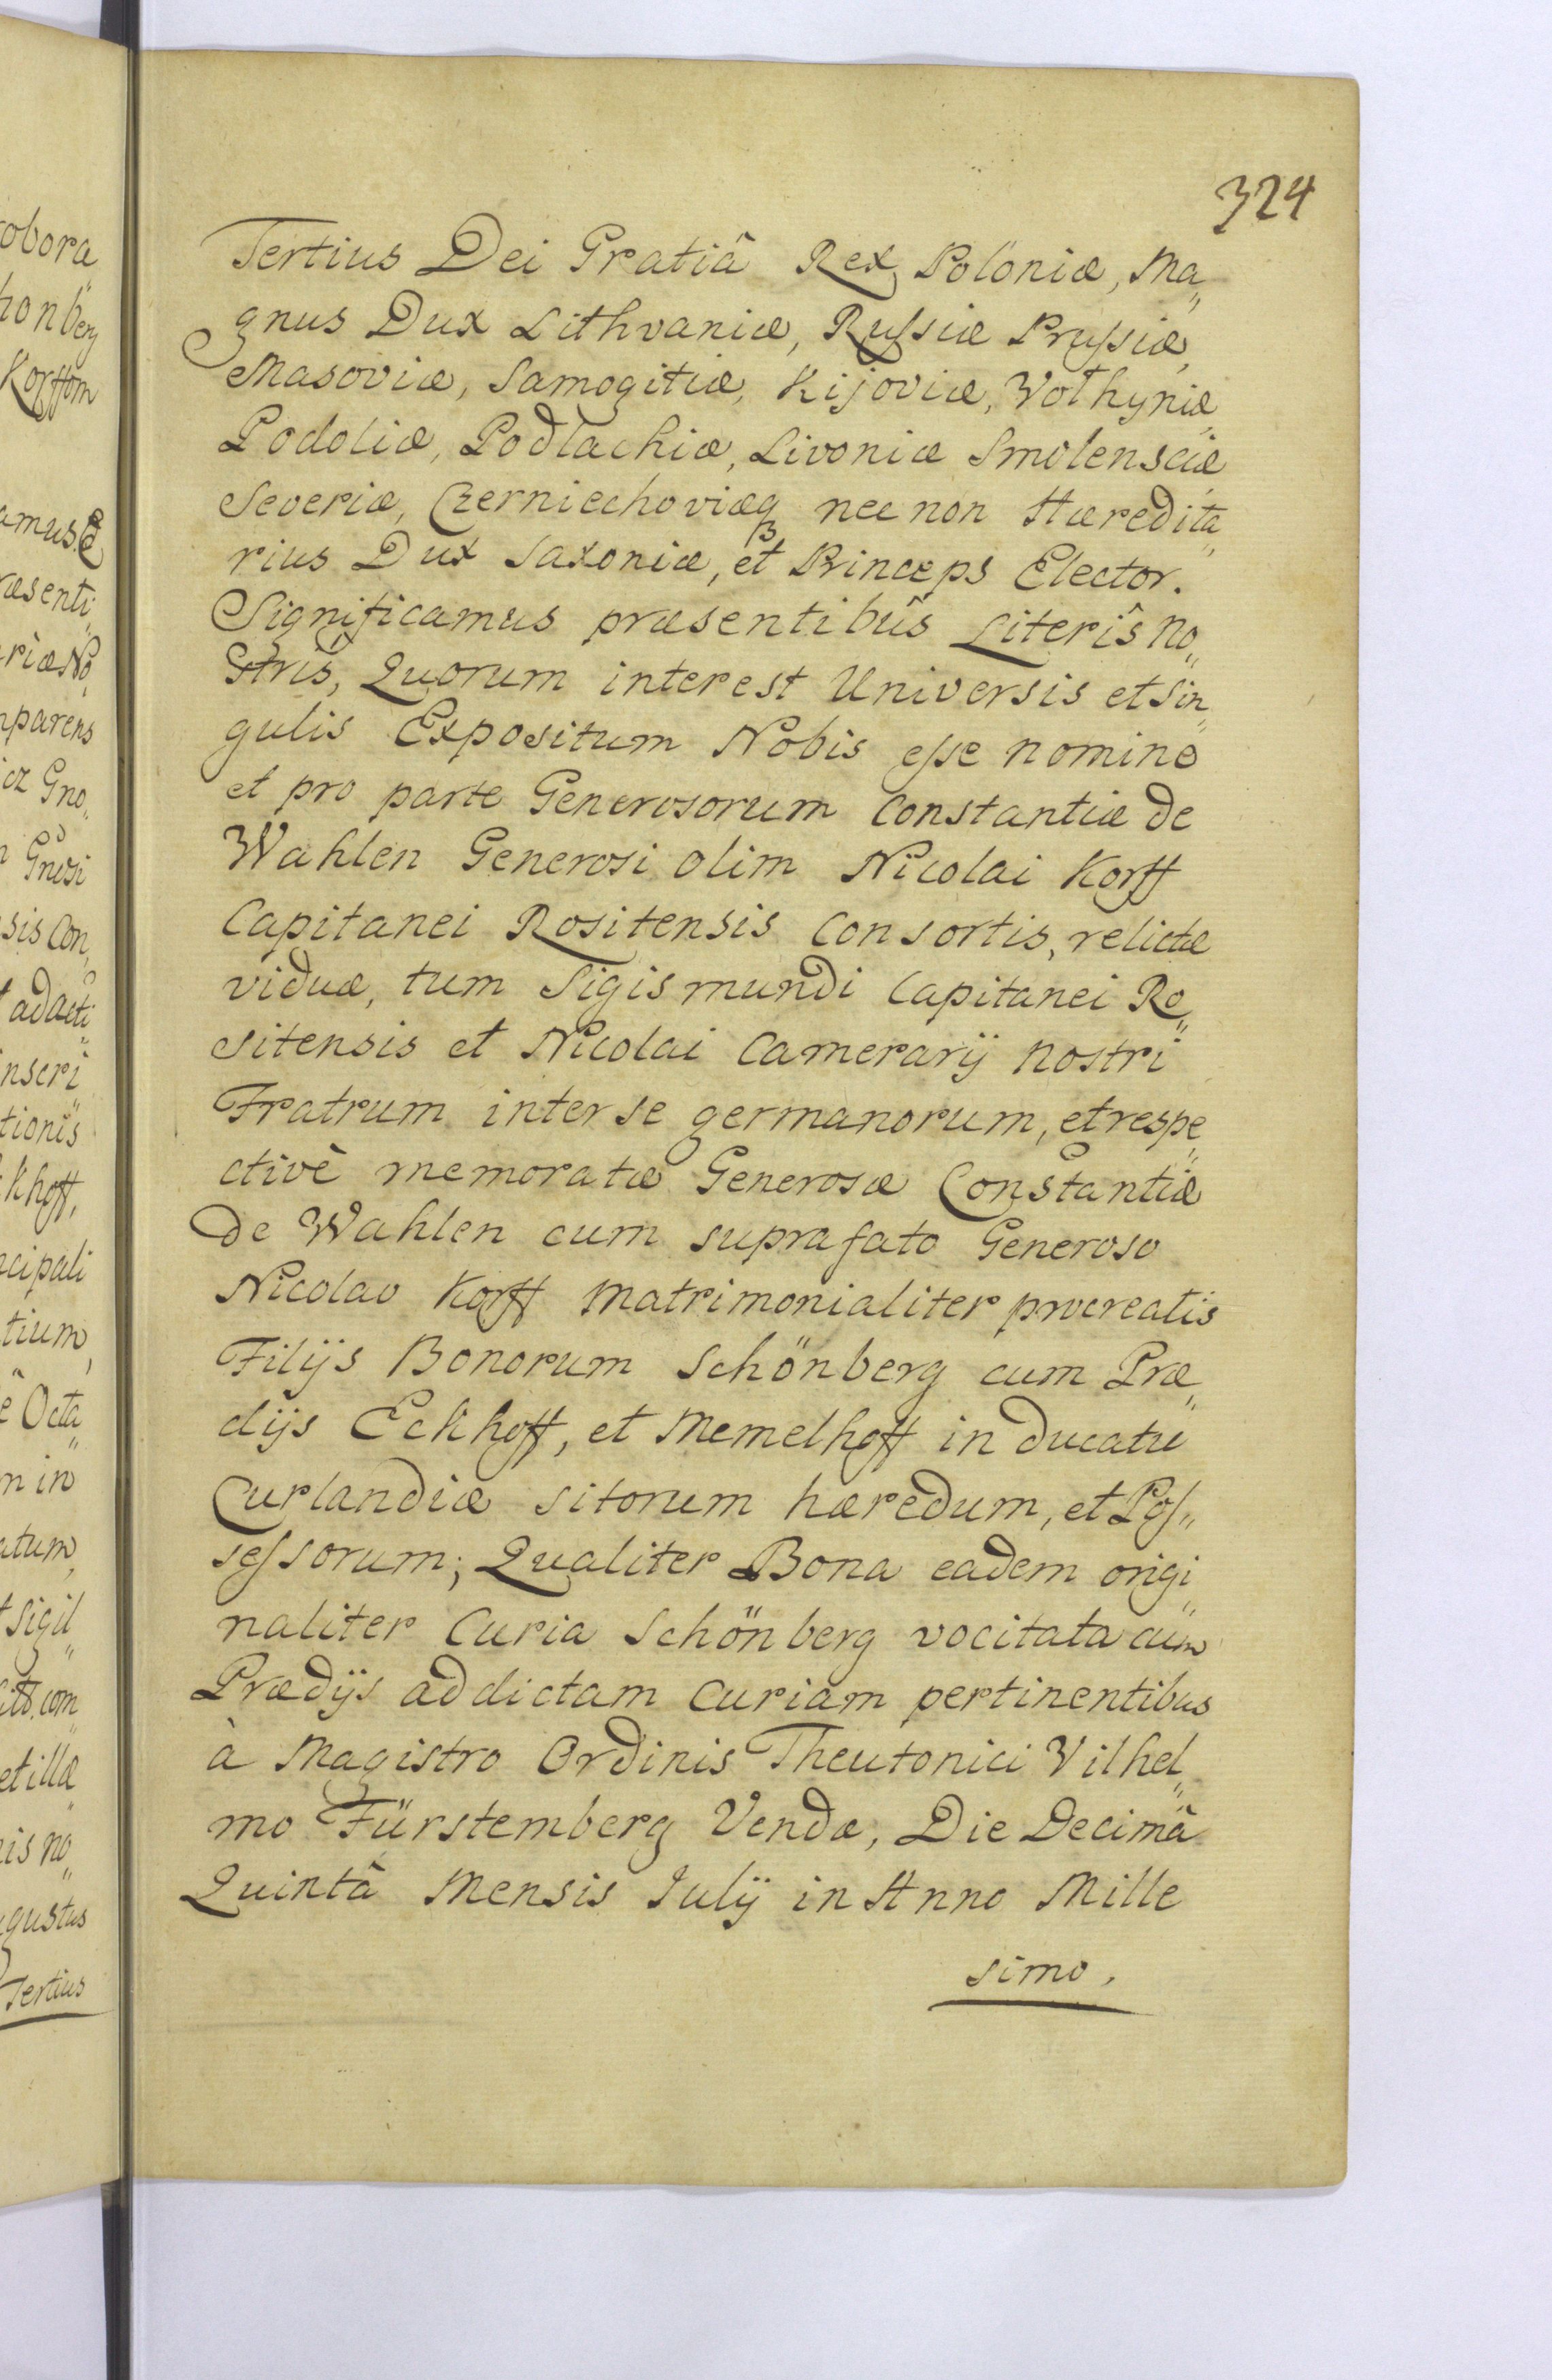 324
Tertius Dei Gratiâ Rex Poloniæ, Ma„
gnus Dux Lithvaniæ, Russiæ Prussiæ,
Masoviæ, Samogitiæ, Kijoviæ, Volhyniæ,
Podoliæ, Podlachiæ, Livoniæ Smolensciæ
Severiæ, Czerniechoviæq nec non Hæredita„
rius Dux Saxoniæ, et Princeps Elector.
Significamus præsentibûs Literîs No„
stris, Quorum interest Universis et Sin„
gulis Expositum Nobis esse nomine
et pro parte Generosorum Constantiæ de
Wahlen Generosi olim Nicolai Korff
Capitanei Rositensis Consortis, relictæ
viduæ, tum Sigismundi Capitanei Ro„
sitensis et Nicolai Camerarij Nostri
Fratrum inter se germanorum, et respe„
ctivè memoratæ Generosæ Constantiæ
de Wahlen cum suprafato Generoso
Nicolao Korff Matrimonialiter procreatis
Filijs Bonorum Schönberg cum Præ„
dijs Eckhoff, et Memelhoff in Ducatu
Curlandiæ sitorum hæredum, et Pos„
sessorum; Qualiter Bona eadem origi„
naliter Curia Schönberg vocitata cum
Prædijs ad dictam Curiam pertinentibus
à Magistro Ordinis Theutonici Vilhel„
mo Fürstemberg Vendæ, Die Decimâ
Quintâ Mensis Julij in Anno Mille
simo,
obora
honberg
Korffom
amus. E
ræsenti„
riæ No„
parens
Gno„
Gnosi
sis Con„
adacti„
inseri„
tionis
khoff,
ncipali
tium,
Octa„
n in
atum,
Sigil„
com„
et illæ„
is no„
gustus
Tertius